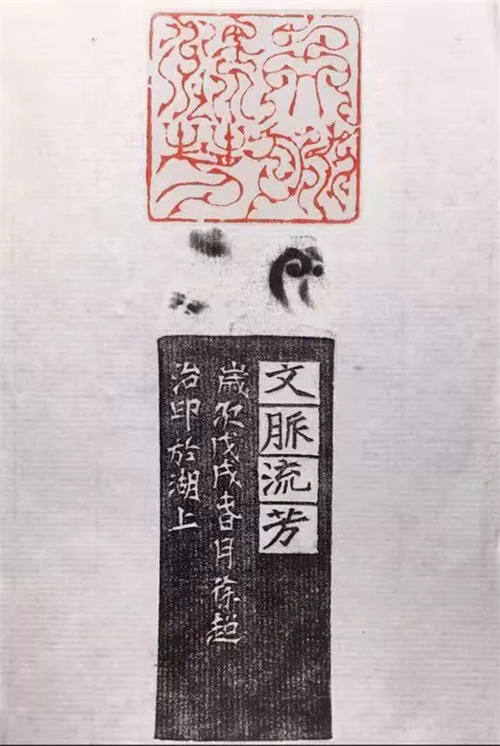 文脈
流芳
文脈流芳
歲次戊戌春月徐超
治印於湖上